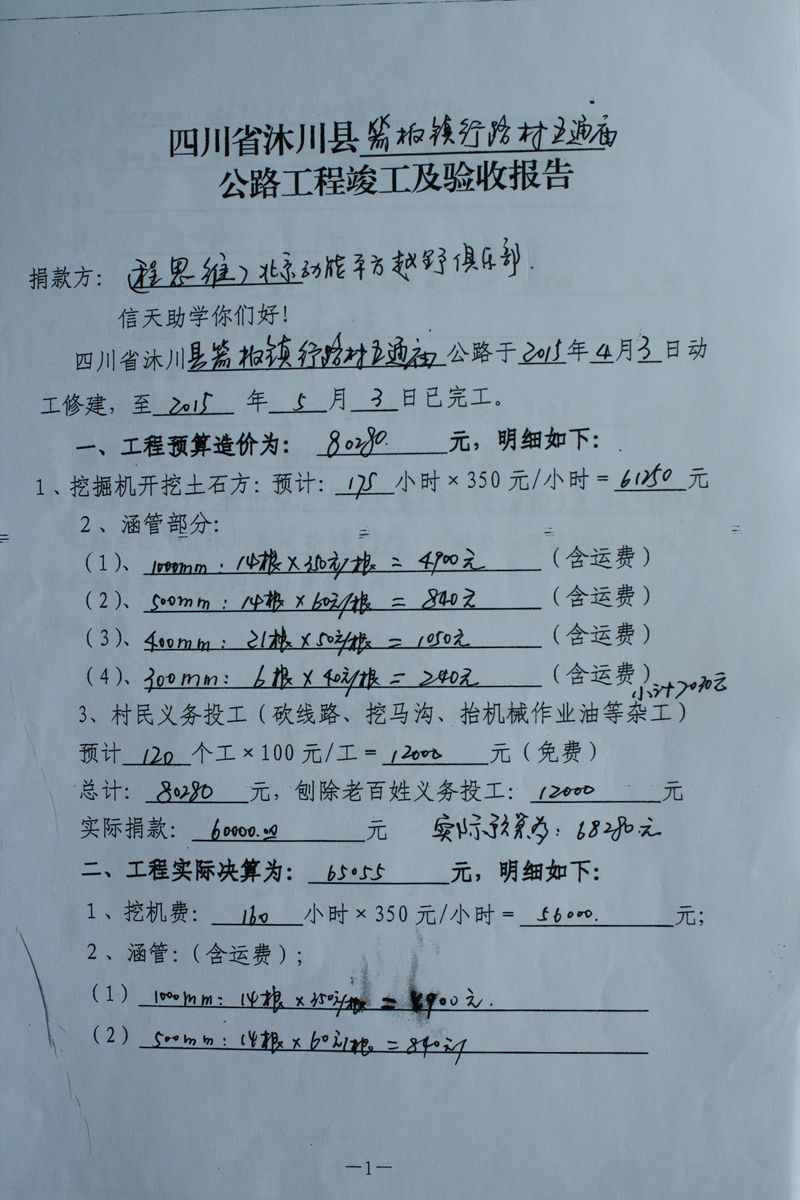 四川省沐川县箭板镇行路村五通庙
公路工程竣工及验收报告
捐款方：（程思维）北京动能平方越野俱乐部.
信天助学你们好！
四川省沐川县箭板镇行路村五通庙公路于2015年4月3日动
工修建，至2015年5月3日已完工。
一、工程预算造价为：80280.元，明细如下：
1、挖掘机开挖土石方：预计：175小时×350元/小时=61250元
2、涵管部分：
（1）、1000mm：14根×350元/根=4900元（含运费）
（2）、500mm：14根×60元/根=840元（含运费）
（3）、400mm：21根×50元/根=1050元（含运费）
（4）、300mm：6根×40元/根=240元（含运费）
小计7030元
3、村民义务投工（砍线路、挖马沟、抬机械作业油等杂工）
预计120个工×100元/工=12000元（免费）
总计：80280元，刨除老百姓义务投工：12000元
实际捐款：60000.00元 实际预算为：68280元
二、工程实际决算为：65055元，明细如下：
1、挖机费：160小时×350元/小时=56000.元；
2、涵管：（含运费）；
（1）1000mm：14根×350元/根=4900元.
（2）500mm：14根×60元/根=840元
—1—